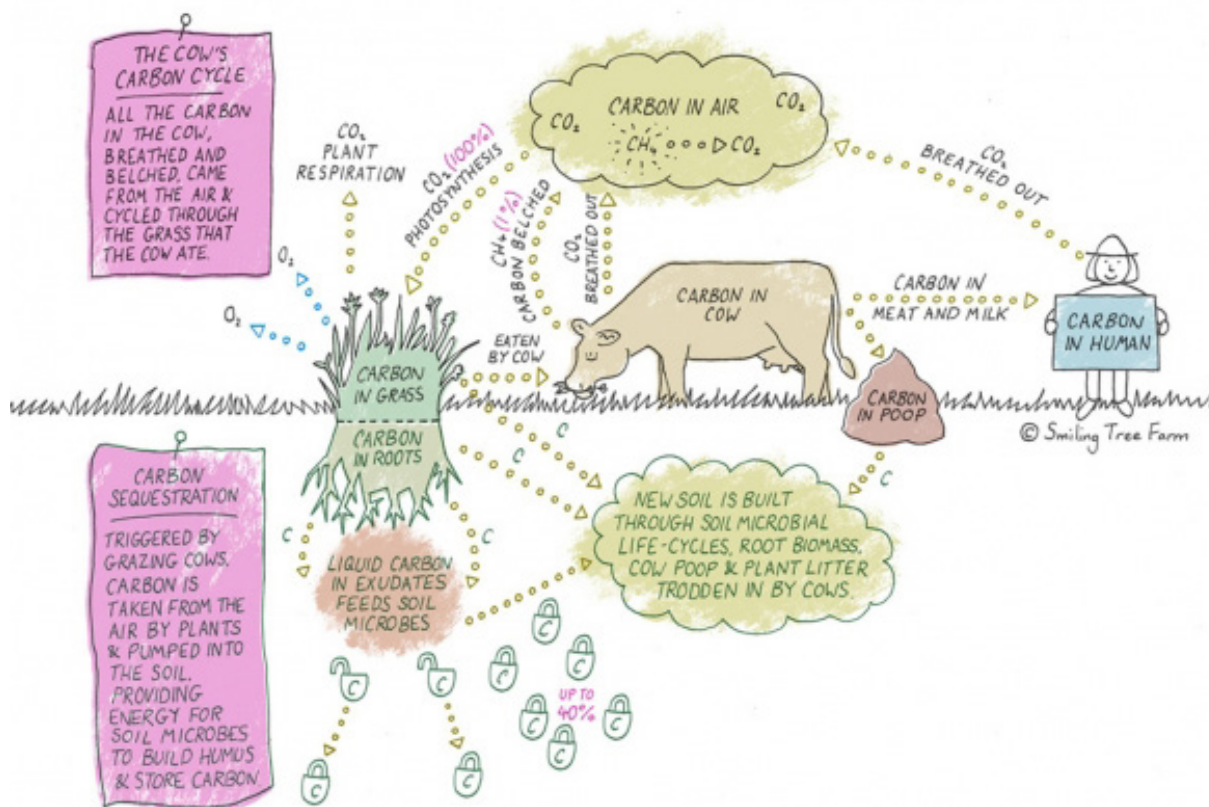 THE COW'S
CARBON CYCLE
ALL THE CARBON
IN THE COW,
BREATHED AND
BELCHED, CAME
FROM THE AIR &
CYCLED THROUGH
THE GRASS THAT
THE COW ATE.
CO₂
PLANT
RESPIRATION
O₂
O₂
CO₂ (100%)
PHOTOSYNTHESIS
CARBON IN AIR
CO₂
CO₂
CH₄ CO₂
CH₄ (1%)
CARBON BELCHED
CO₂
BREATHED OUT
CO₂
BREATHED OUT
EATEN
BY COW
CARBON IN
COW
CARBON IN
MEAT AND MILK
CARBON
IN HUMAN
CARBON
IN GRASS
CARBON
IN ROOTS
CARBON
IN POOP
© Smiling Tree Farm
C
C
C
C
C
CARBON
SEQUESTRATION
TRIGGERED BY
GRAZING COWS.
CARBON IS
TAKEN FROM THE
AIR BY PLANTS
& PUMPED INTO
THE SOIL.
PROVIDING
ENERGY FOR
SOIL MICROBES
TO BUILD HUMUS
& STORE CARBON
LIQUID CARBON
IN EXUDATES
FEEDS SOIL
MICROBES
NEW SOIL IS BUILT
THROUGH SOIL MICROBIAL
LIFE-CYCLES, ROOT BIOMASS,
COW POOP & PLANT LITTER
TRODDEN IN BY COWS.
C
C
C
C
C
C
UP TO
40%
C
C
C
C